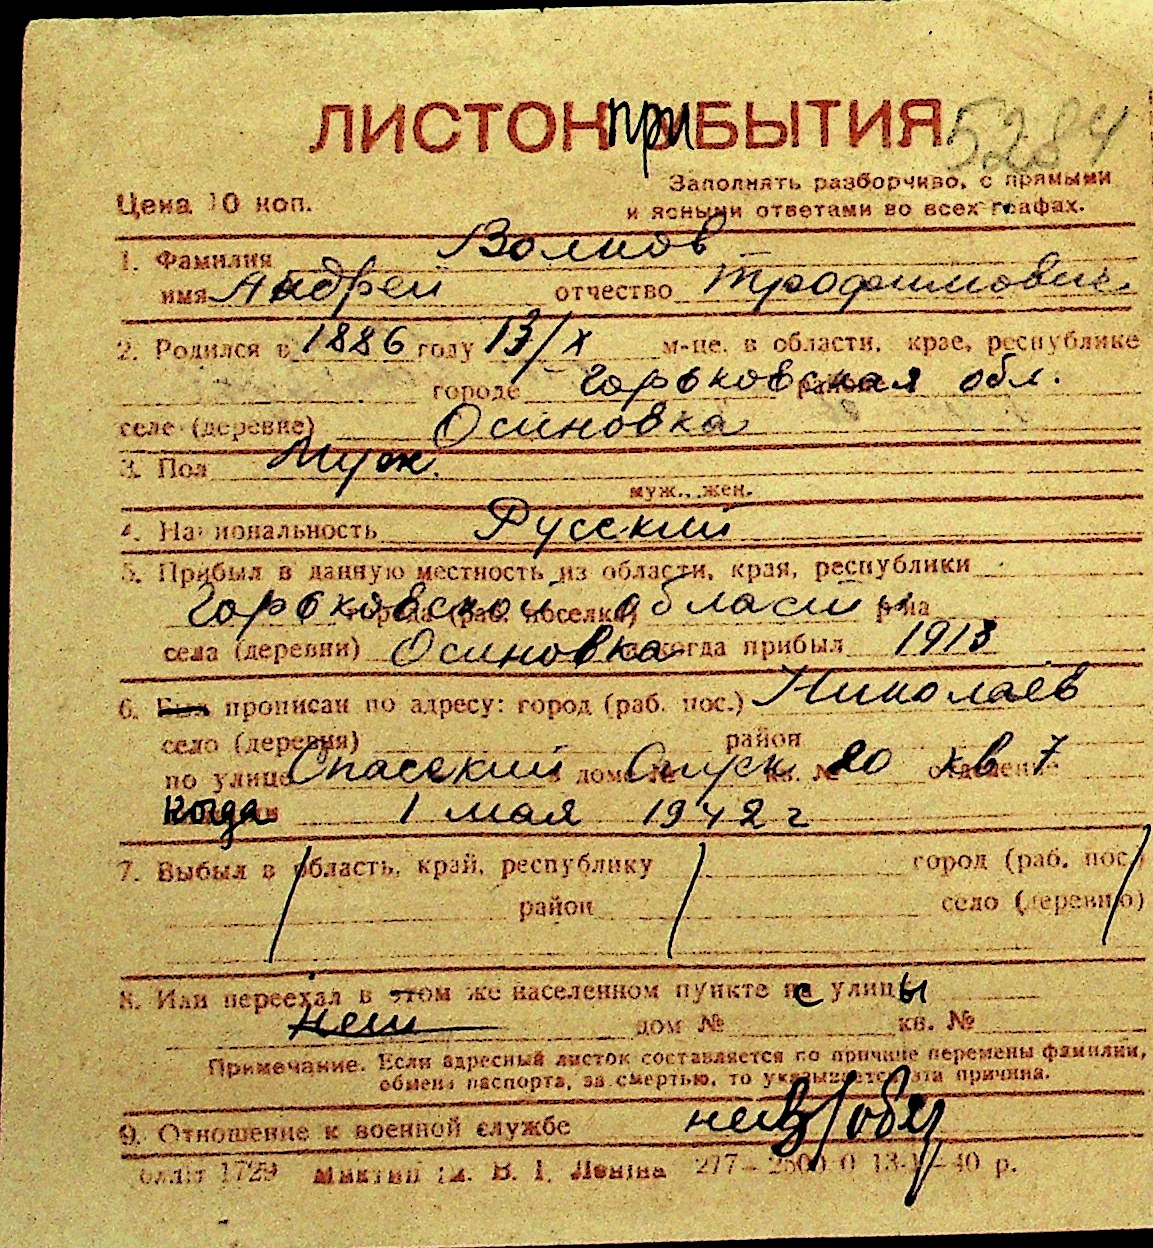 ЛИСТОК ПРИБЫТИЯ 5284
Цена 10 коп. Заполнять разборчиво, с прямыми
и ясными ответами во всех графах.
1. Фамилия Волков
имя Андрей отчество Трофимович
2. Родился в 1886 году 13/X м-це, в области, крае, республике
городе Горьковская обл.
селе (деревне) Осиновка
3. Пол Муж.
муж., жен.
4. Национальность Русский
5. Прибыл в данную местность из области, края, республики
Горьковской области города (раб. поселка) р-на
села (деревни) Осиновка когда прибыл 1913
6. Был прописан по адресу: город (раб. пос.) Николаев
село (деревня) район
по улице Спасский Спуск дом № 20 кв. № кв 7 отделение
когда 1 мая 1942 г
7. Выбыл в область, край, республику город (раб. пос.)
район село (деревню)
8. Или переехал в этом же населенном пункте с улицы
нет дом № кв. №
Примечание. Если адресный листок составляется по причине перемены фамилии,
обмена паспорта, за смертью, то указывается эта причина.
9. Отношение к военной службе нев/обяз
1729 В. І. Леніна 40 р.